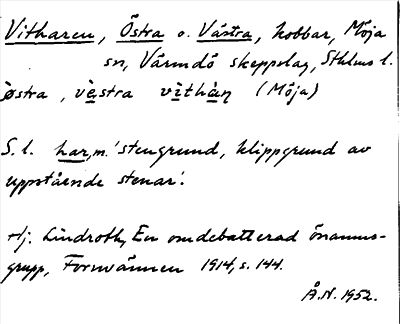 Vitharen, Östra o. Västra, kobbar, Möja
sn, Värmdö skeppslag, Sthlms l.
östra, västra vithàṇ (Möja)
S. l. har, m. 'stengrund, klippgrund av
uppstående stenar'.
Hj. Lindroth, En omdebatterad önamns-
grupp, Fornvännen 1914, s. 144.
Å.N. 1952.